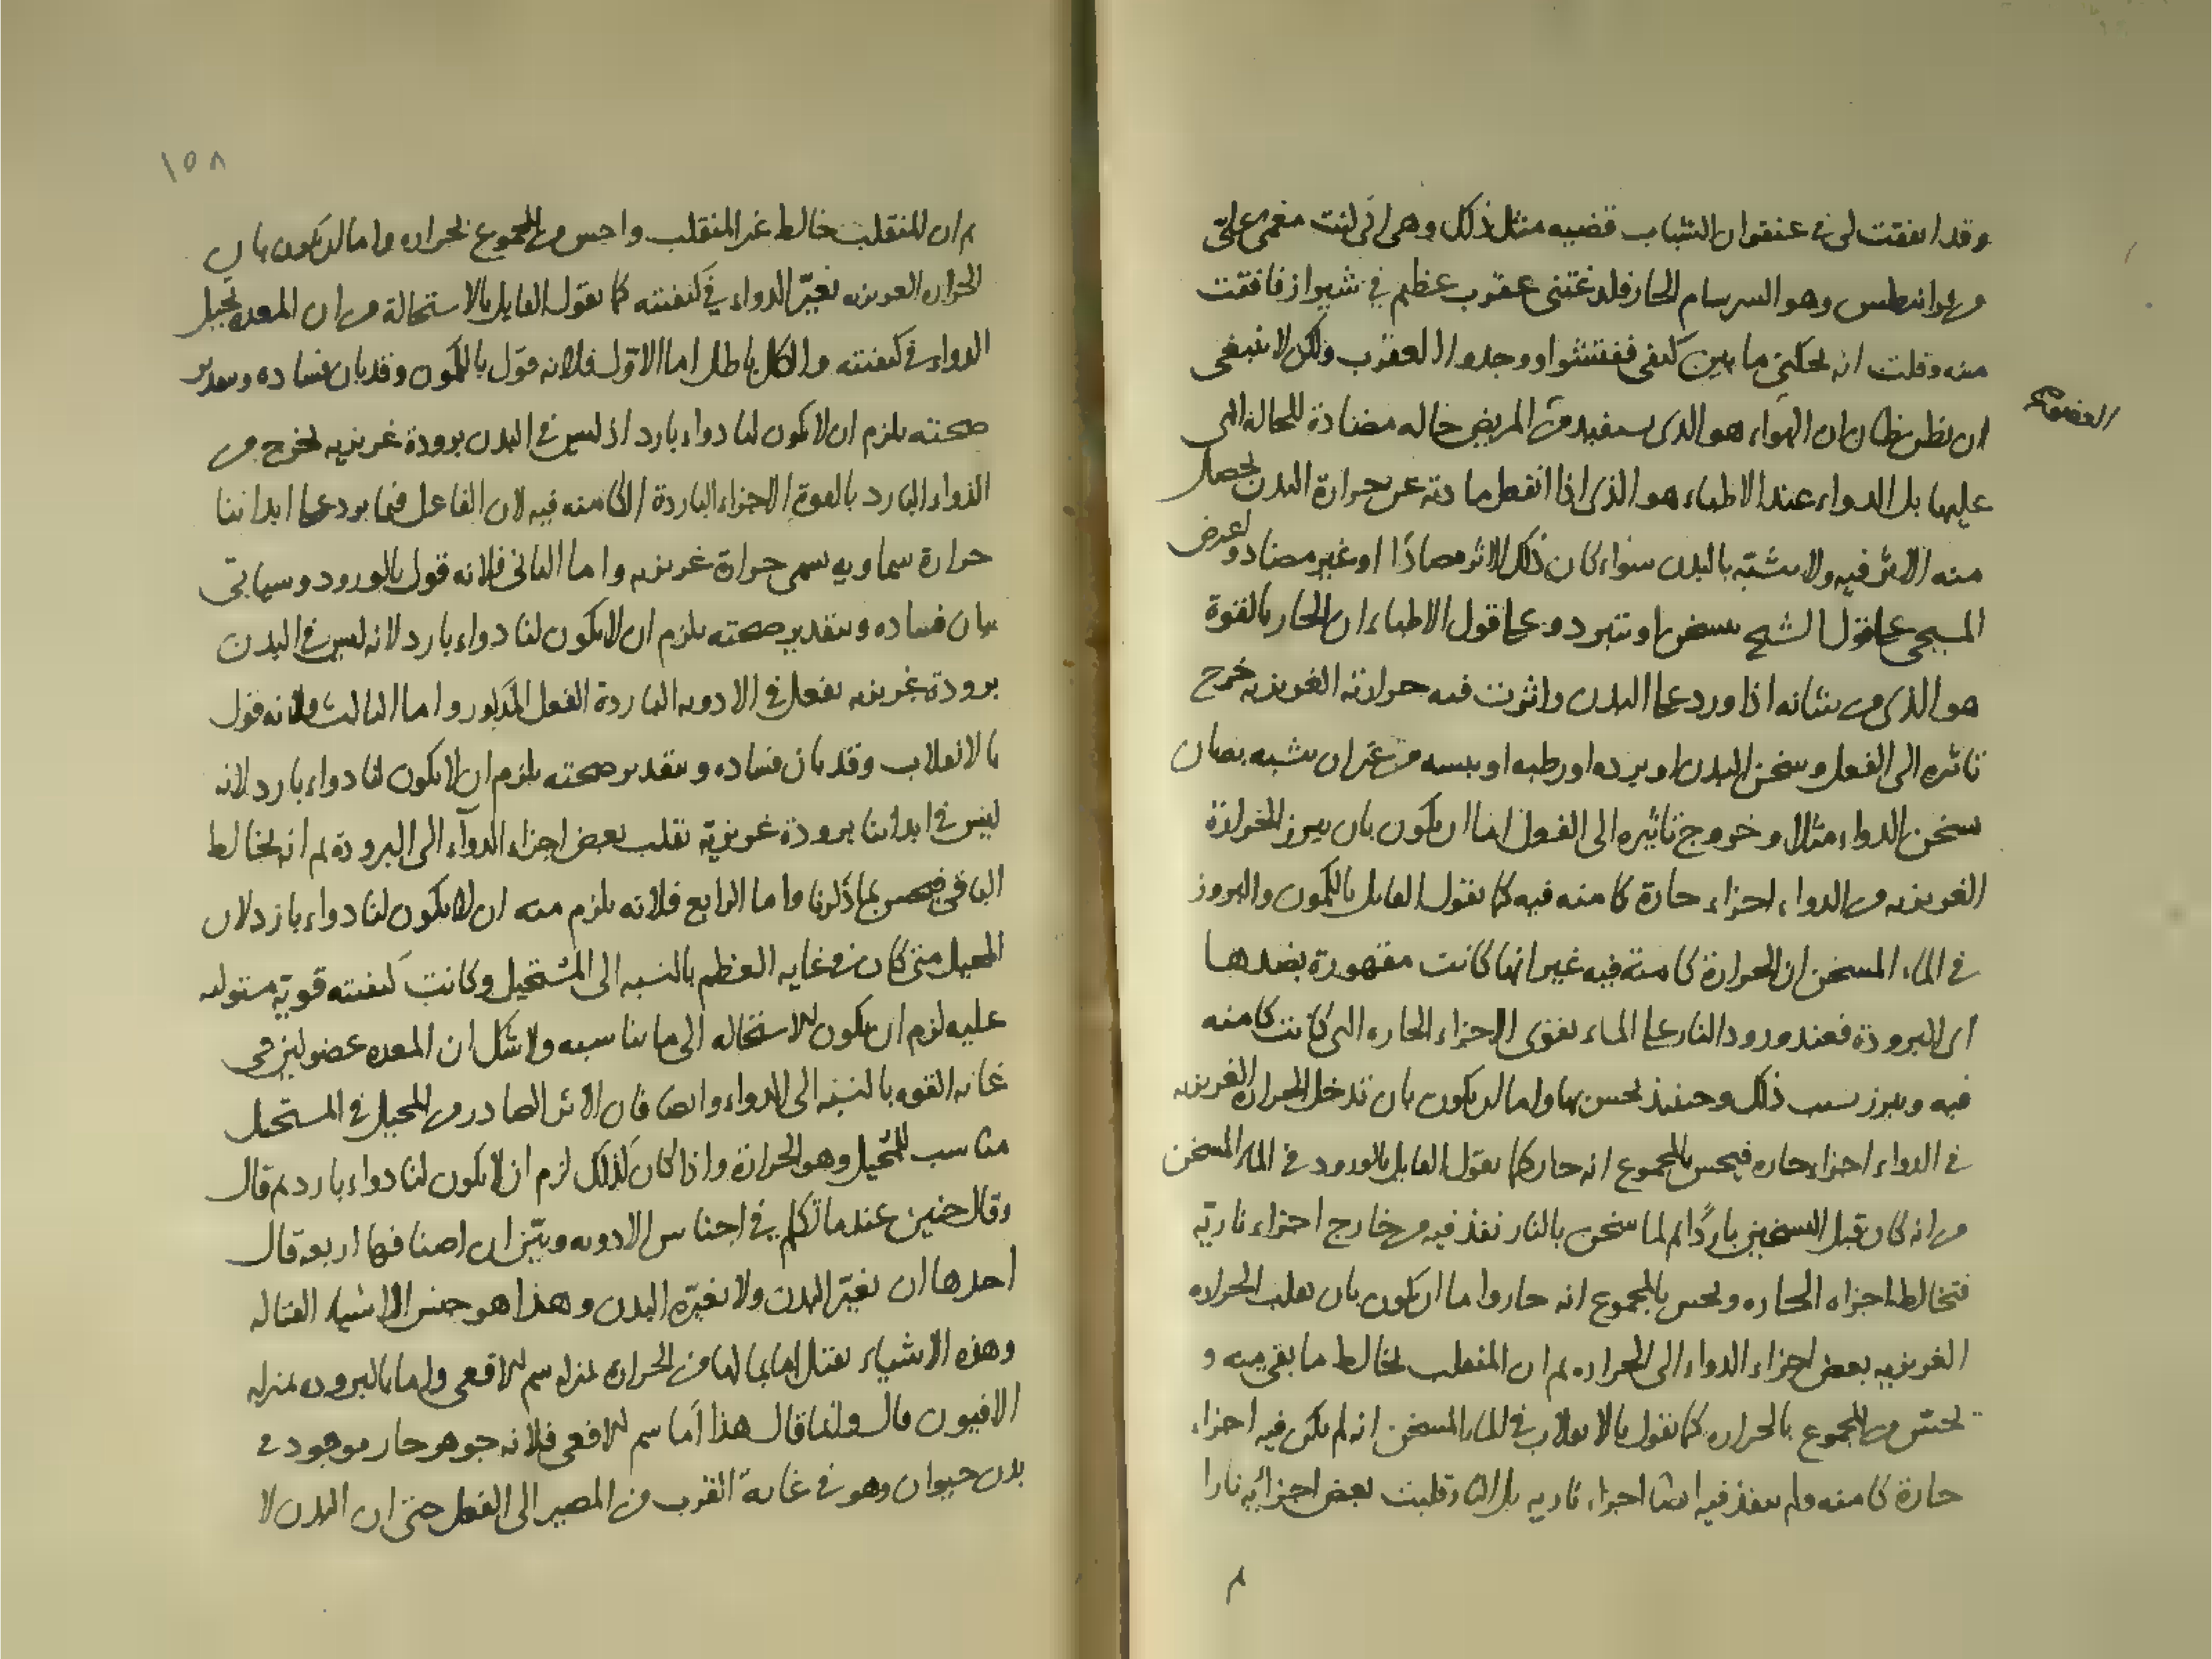 وقد اتفقت لى فى عنفوان الشباب قضيه مثل ذلك وهى انى كنت مغمى على
من قرانيطس وهو السرسام الحار فلدغتنى عقرب عظيم فى شيراز فافقت
منه وقلت انه يحكنى ما بين كتفى ففتشوا ووجدوا العقرب ولكن لا ينبغى
ان يظن ظان ان الهواء هو الذى يستفيد من المريض حاله مضادة للحالة التى
عليها بل الدواء عند الاطباء هو الذى اذا انفعل مادته عن حرارة البدن يحصل
منه الاثر فيه ولا يشتبه بالبدن سواء كان ذلك الاثر مضادا او غير مضاد واعرض
المسيحى على قول الشيخ يسخن او يبرد وعلى قول الاطباء ان الحار بالقوة
هو الذى من شانه اذا ورد على البدن واثرت فيه حرارته الغريزيه خرج
تاثيره الى الفعل وسخن البدن او برده او رطبه او يبسه من غير ان يشبه بان
سخن الدواء مثلا وخروج تاثيره الى الفعل اما ان يكون بان يبرز الحرارة
الغريزيه من الدواء اجزاء حارة كامنه فيه كما يقول القايل بالكمون والبروز
فى الماء المسخن ان الحرارة كامنة فيه غير انها كانت مقهورة بضدها
اى البرودة فعند ورود النار على الماء تقوى الاجزاء الحاره التى كانت كامنه
فيه ويبرز بسبب ذلك وحينئذ يحس بها واما ان يكون بان تدخل الحرارة الغريزيه
فى الدواء اجزاء حاره فيحس بالمجموع انه حار كما يقول القايل بالورود فى الماء المسخن
من انه كان قبل التسخين باردا ثم لما سخن بالنار نفذ فيه من خارج اجزاء نارية
فتخالط اجزاه الحاره ويحس بالمجموع انه حار واما ان يكون بان يقلب الحراره
الغريزيه بعض اجزاء الدواء الى الحراره ثم ان المنقلب يخالط ما بقى منه و
يحس من المجموع بالحراره كما يقول بالانقلاب فى الماء المسخن انه لم يكن فيه اجزاء
حارة كامنه ولم ينفذ فيه ايضا اجزاء ناريه بل النار قلبت بعض اجزائه نارا
١٥٨
ثم ان المنقلب خالط غير المنقلب واحس من المجموع بحراره واما ان يكون بان
الحراره الغريزيه تغير الدواء فى كيفيته كما يقول القايل بالاستحالة من ان المعده تحيل
الدواء فى كيفيته والكل باطل اما الاول فلانه قول بالكمون وقد بان فساده وبتقدير
صحته يلزم ان لا يكون لنا دواء بارد اذ ليس فى البدن برودة غريزيه تخرج من
الدواء البارد بالقوة الاجزاء الباردة الكامنه فيه لان الفاعل فيما يرد على ابداننا
حرارة سماويه تسمى حرارة غريزيه واما الثانى فلانه قول بالورود وسياتى
بيان فساده وبتقدير صحته يلزم ان لا يكون لنا دواء بارد لانه ليس فى البدن
برودة غريزيه تفعل فى الادويه الباردة الفعل المذكور واما الثالث فلانه قول
بالانقلاب وقد بان فساده وبتقدير صحته يلزم ان لا يكون لنا دواء بارد لانه
ليس فى ابداننا برودة غريزية تقلب بعض اجزاء الدواء الى البرودة ثم انه يخالط
الباقى فيحس بما ذكرنا واما الرابع فلانه يلزم منه ان لا يكون لنا دواء بارد لان
المحيل متى كان فى غايه العظم بالنسبه الى المستحيل وكانت كيفيته قوية مستوليه
عليه لزم ان يكون الاستحاله الى ما يناسبه ولا شك ان المعده عضو ليس فى
غايه القوه بالنسبه الى الدواء وايضا فان الاثر الصادر من المحيل فى المستحيل
مناسب للمحيل وهو الحرارة واذا كان كذلك لزم ان لا يكون لنا دواء بارد ثم قال
وقال حنين عندما تكلم فى اجناس الادويه وبين ان اصنافها اربعه قال
احدها ان يغير البدن ولا يغيره البدن وهذا هو جنس الاشياء القتاله
وهذه الاشياء تقتل اما بما لها من الحراره بمنزله سم الافعى واما بالبروده بمنزله
الافيون قال وانما قال هذا اما سم الافعى فلانه جوهر حار موجود فى
بدن حيوان وهو فى غاية القرب من المصير الى الفعل حتى ان البدن لا